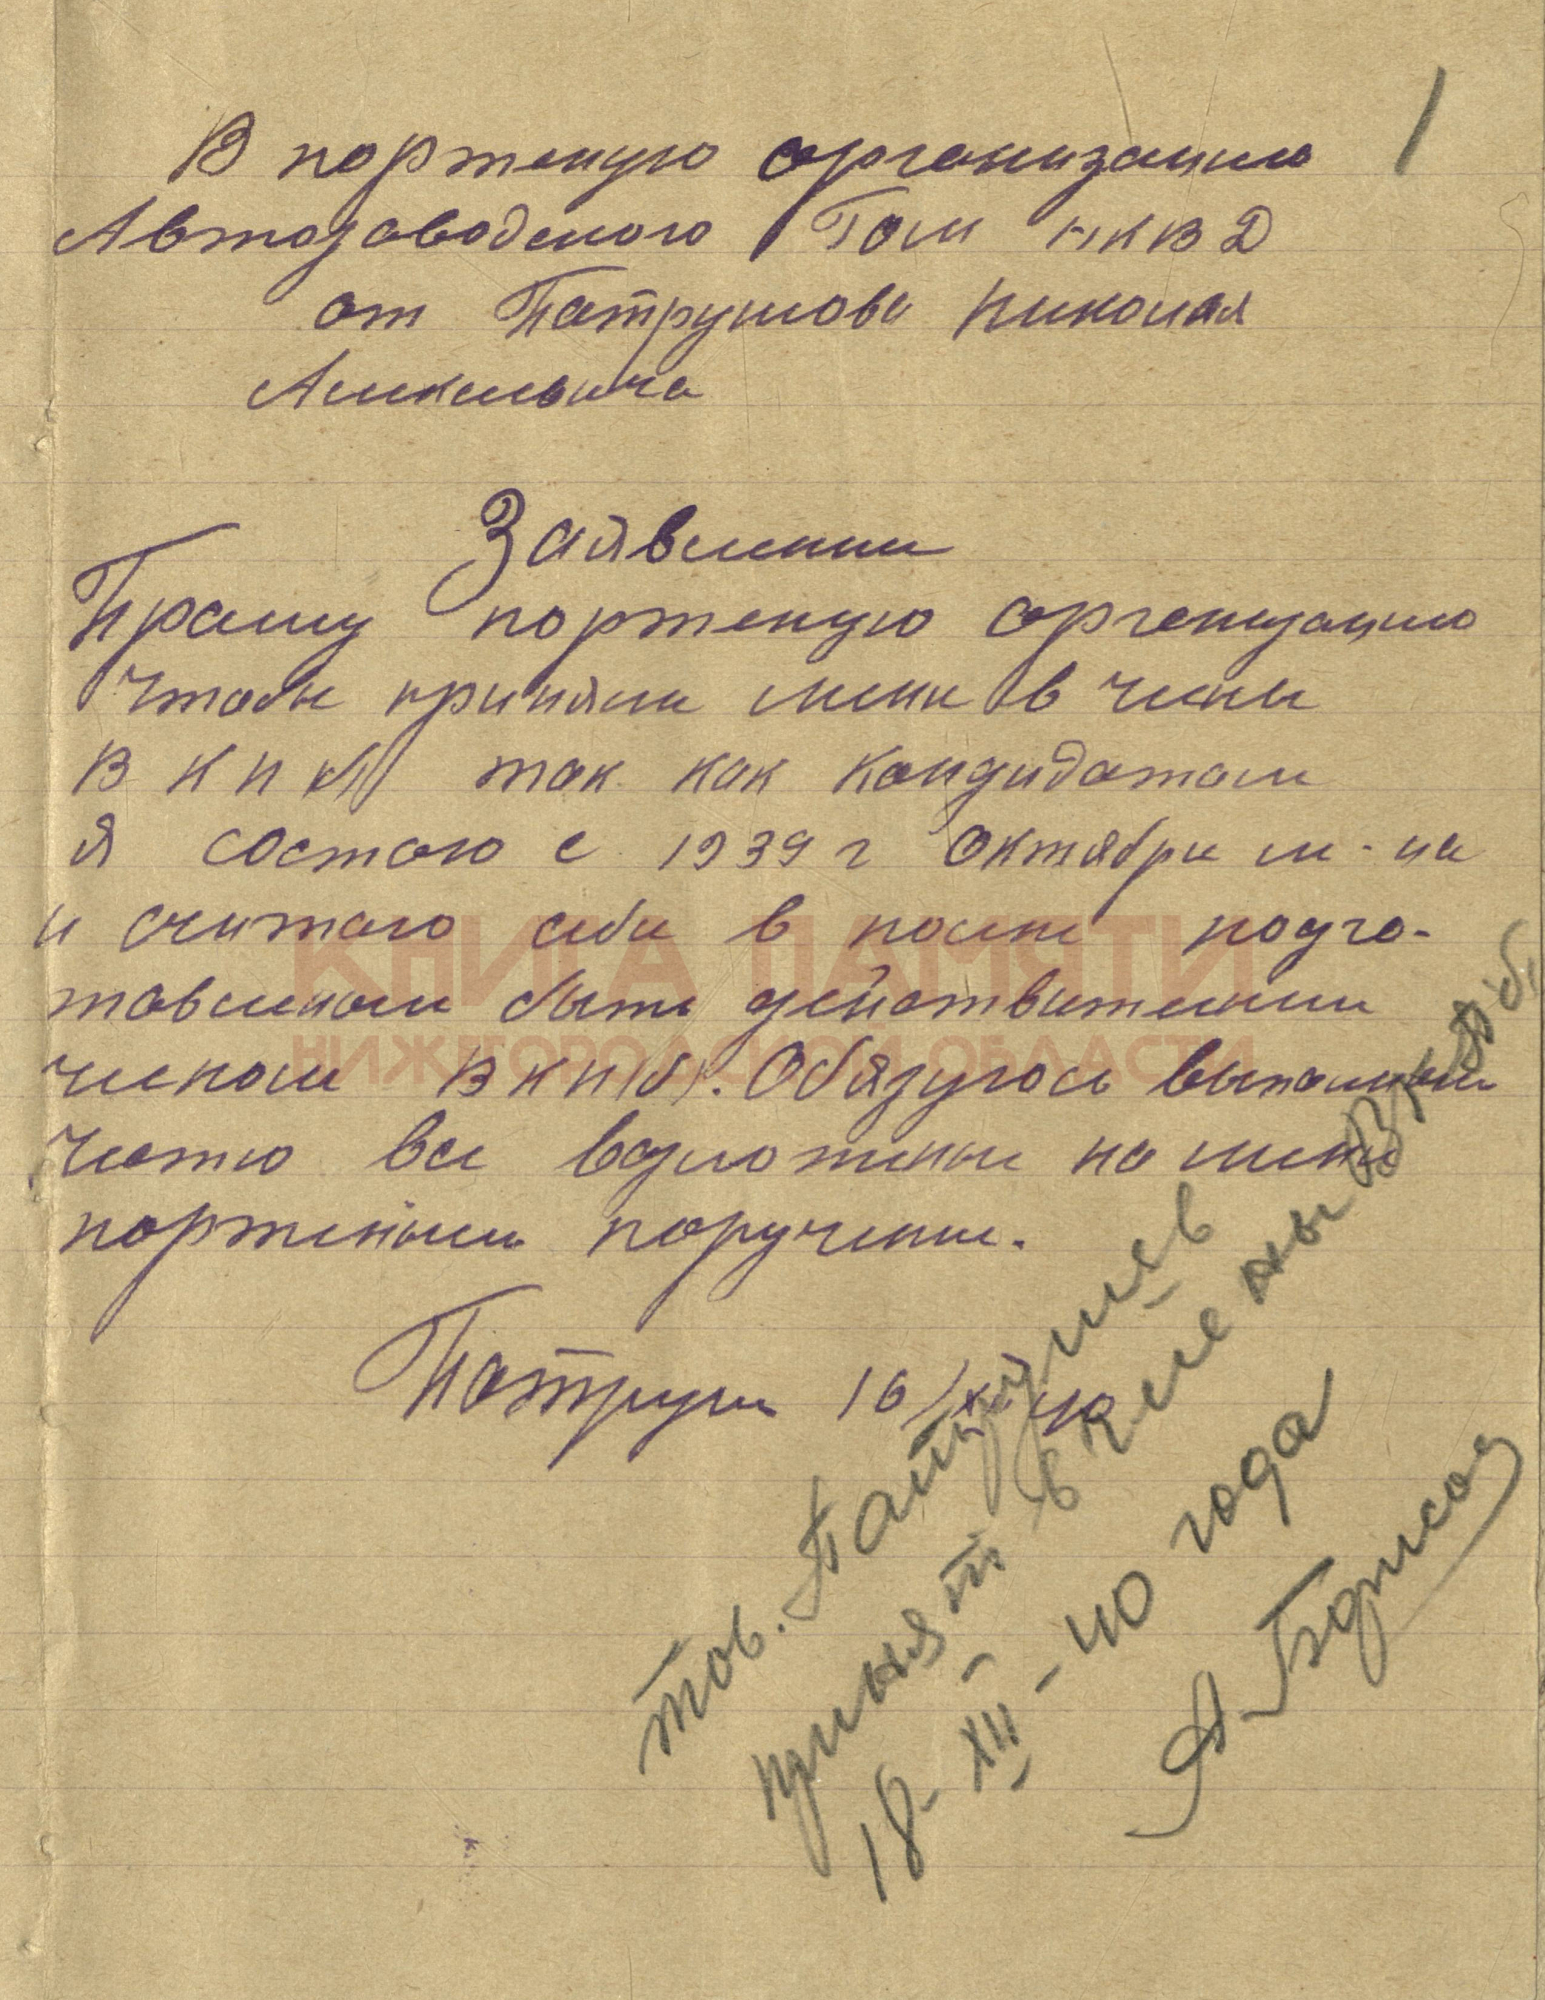 1
В портеную организацию
Автозаводского Гом НКВД
от Патрушова Николая
Заявлении
Прашу портеную организацию
чтобы приняли мене в члены
ВКП(б) так как кандидатом
я состою с 1939 г Октябри м-ца
и считаю себе в полне подго-
товленом быть действителни
членом ВКП(б). Обязуюсь выполнит
честно все возложеные на мене
портейным поручении.
Патруш 16/XII 40
тов. Патрушев
принят в члены ВКП(б)
18-XII-40 года
А. Борисов
КНИГА ПАМЯТИ
НИЖЕГОРОДСКОЙ ОБЛАСТИ